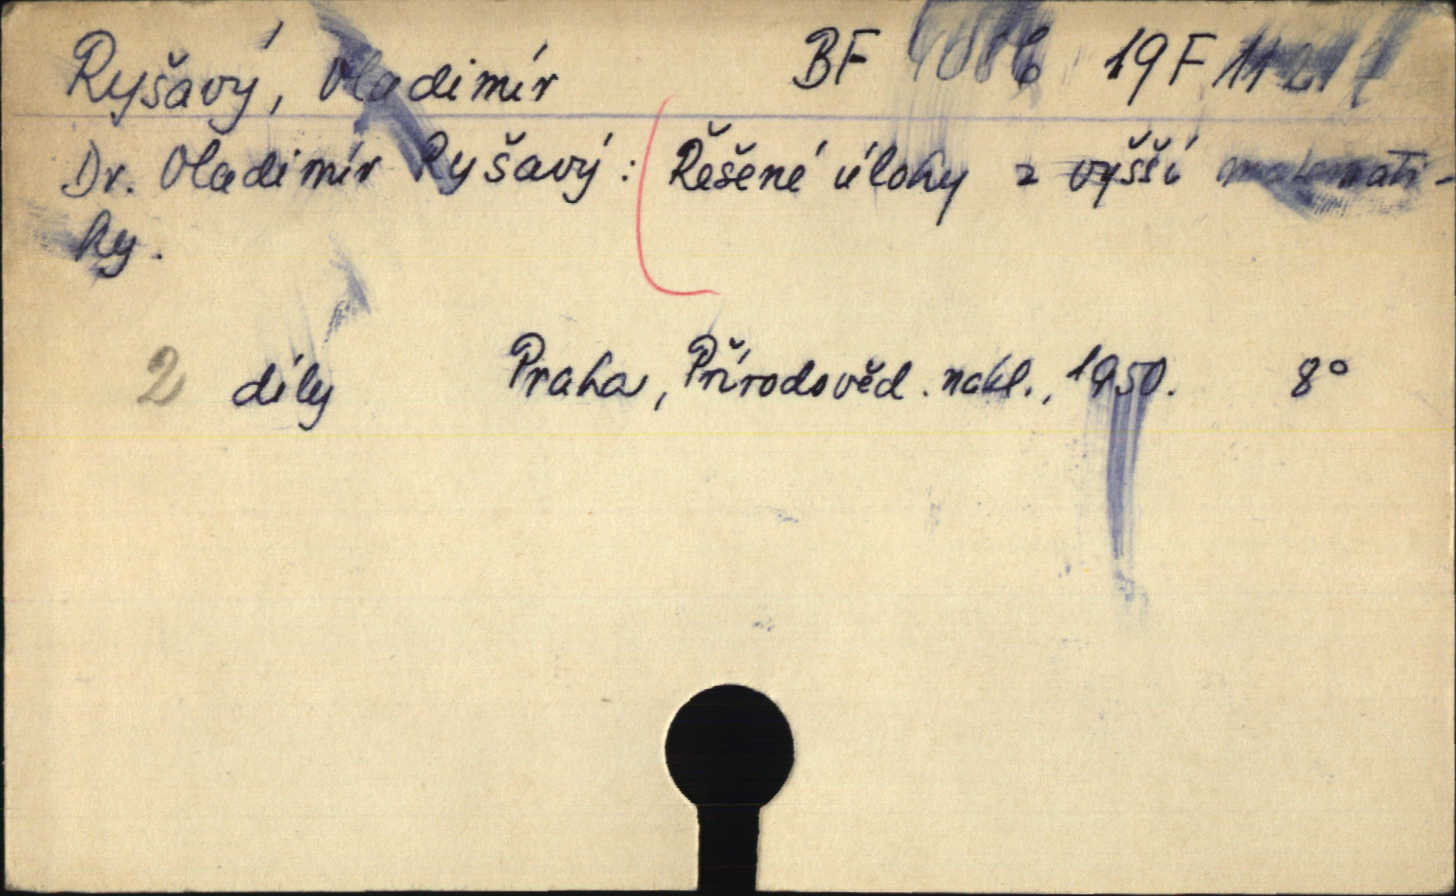 Ryšavý, Vladimír BF 19F
Dr. Vladimír Ryšavý: Řešené úlohy z vyšší matemati-
ky.
2 díly Praha, Přírodověd. nakl., 1950. 8°